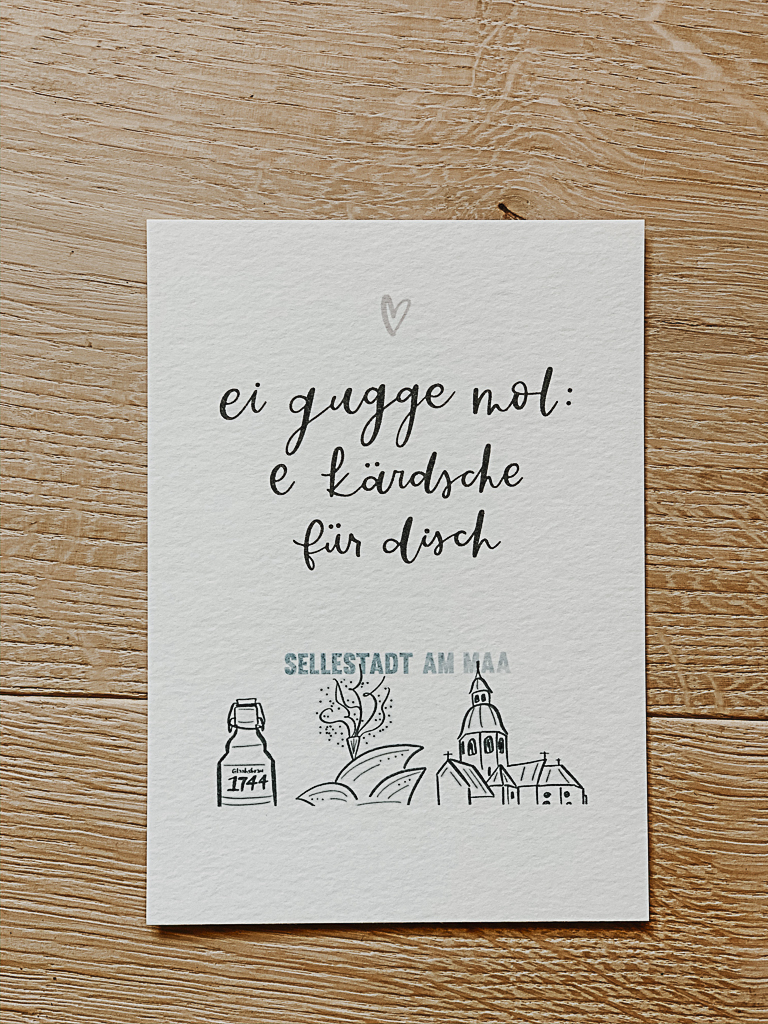 ei gugge mol:
e kärdsche
für disch
SELLESTADT AM MAA
Glaabsbräu
1744